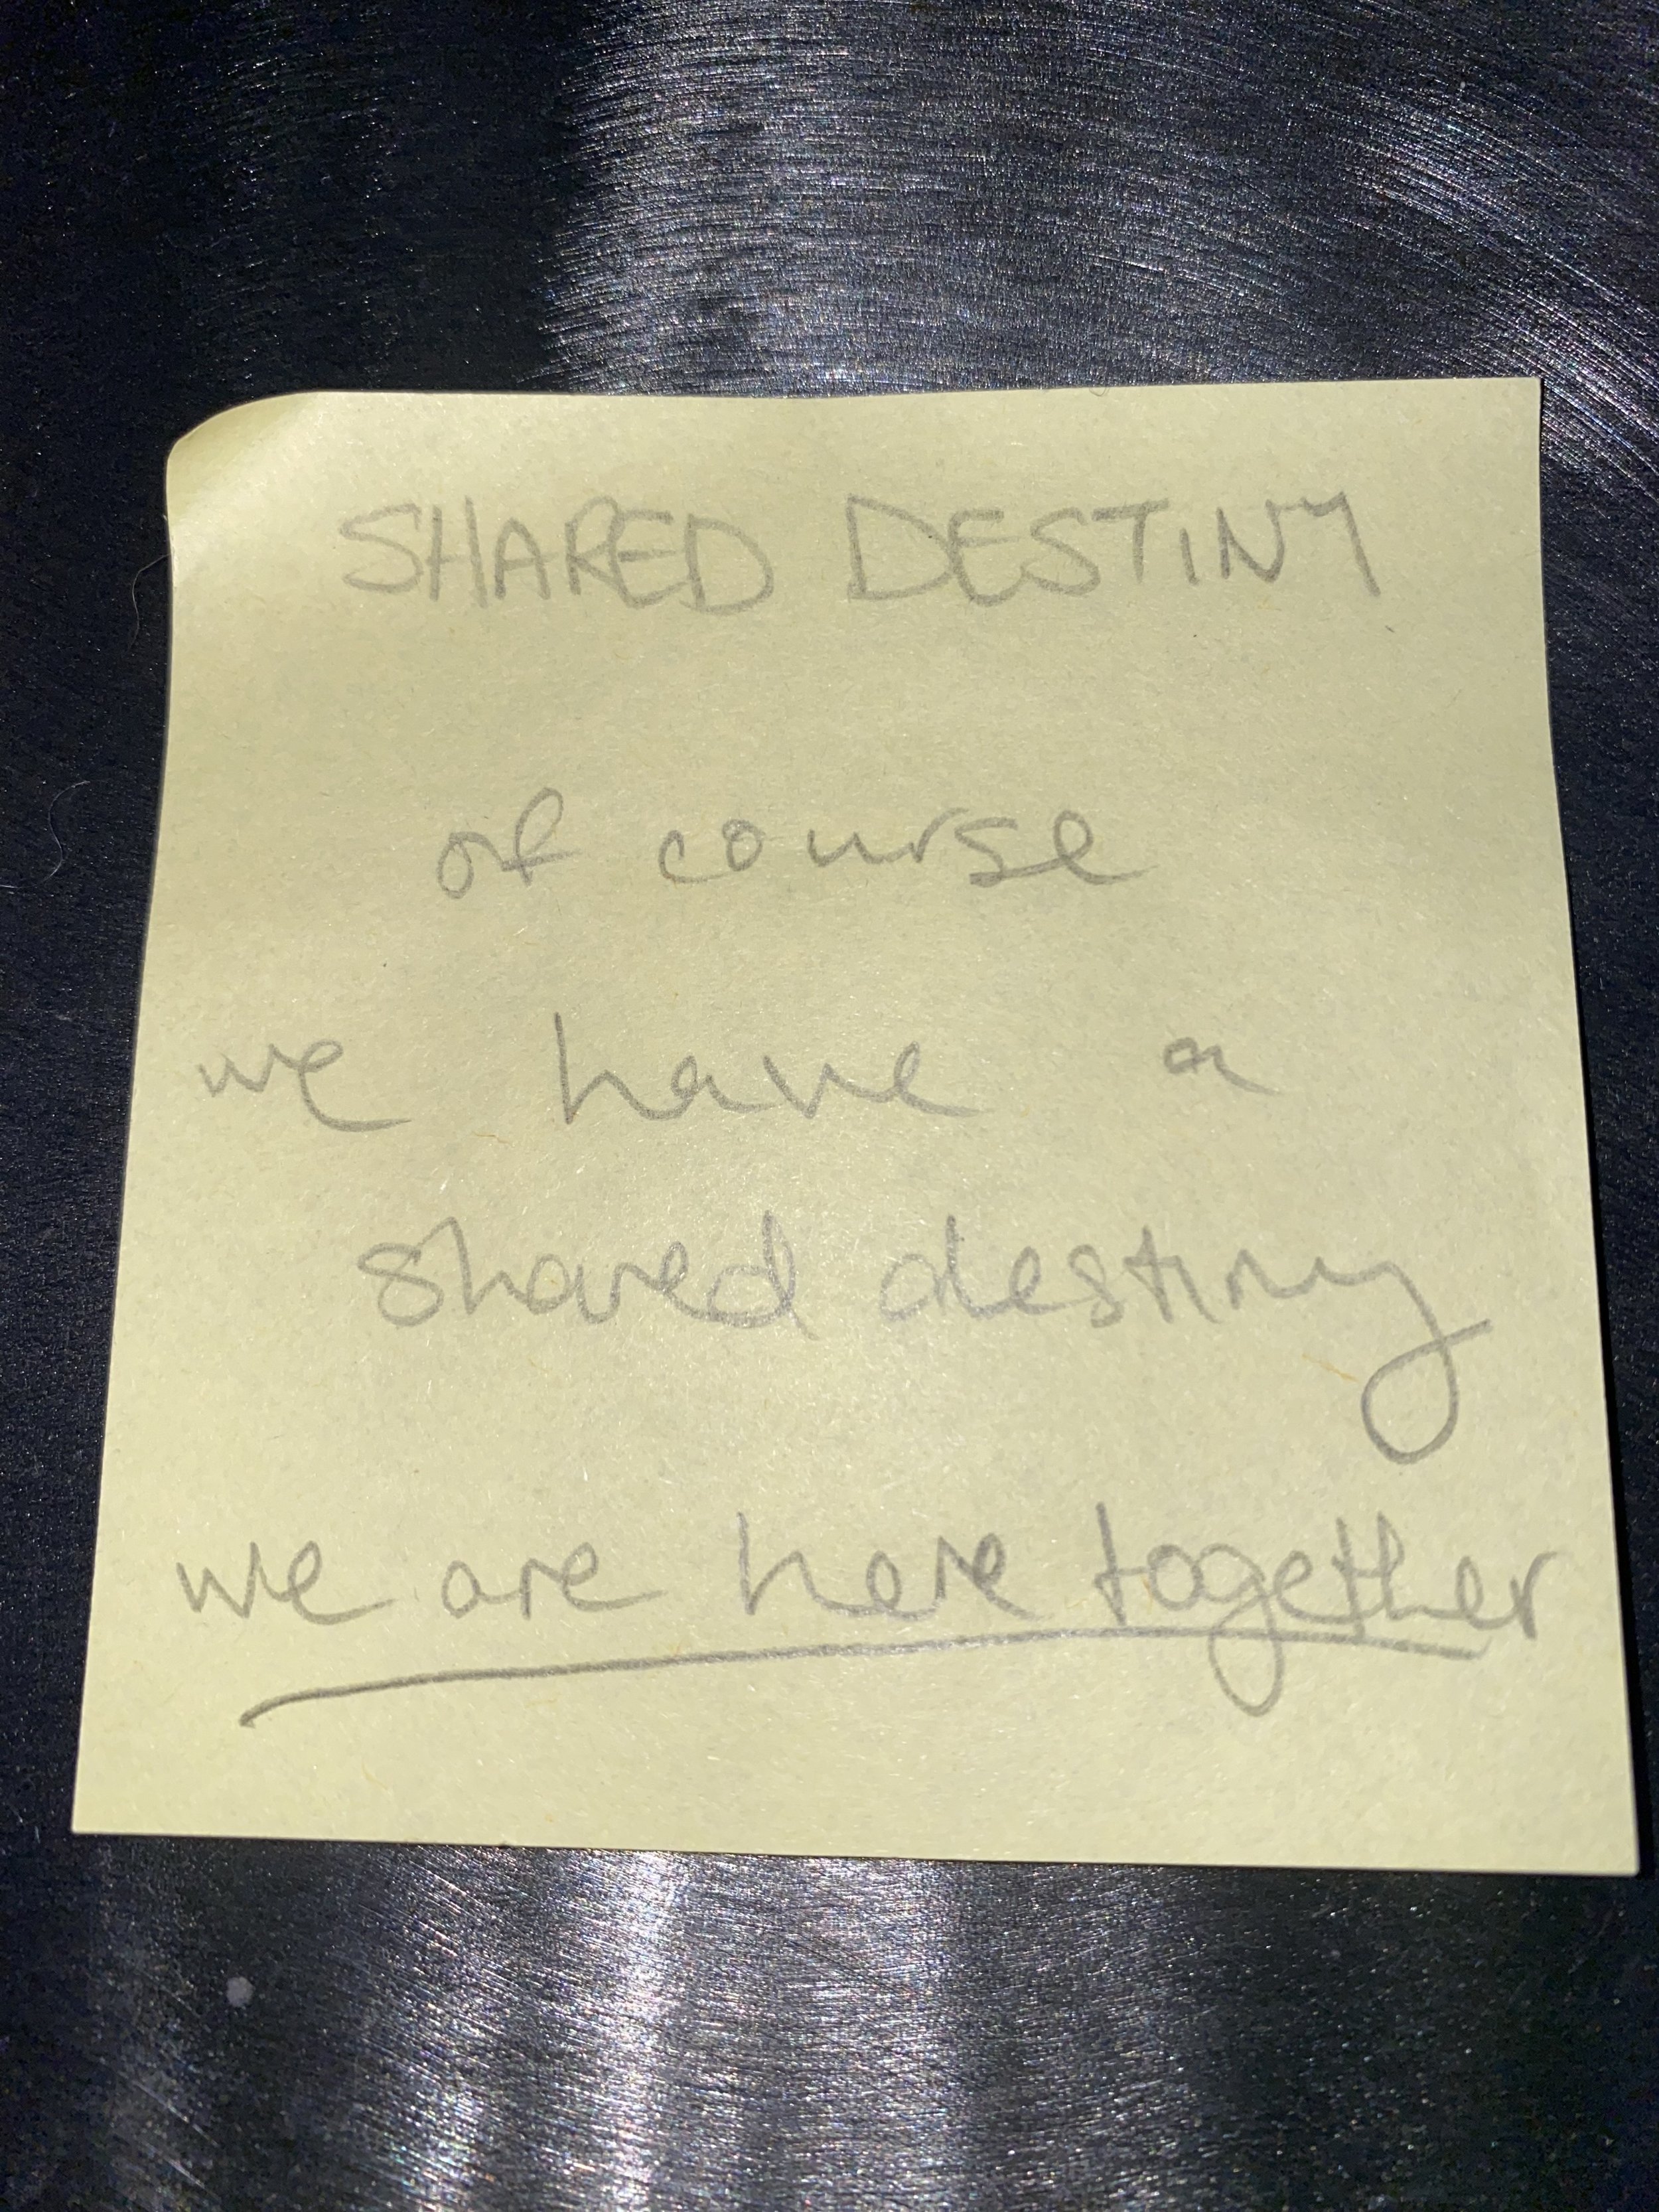 SHARED DESTINY
of course
we have a
shared destiny
we are here together